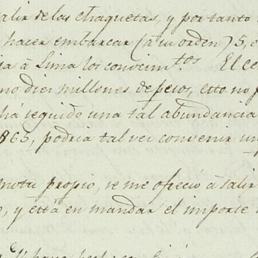 salir de las chaquetas, y por tanto
hacer embarcar (a su orden) 5, o
a á Lima los convenim.tos El ce
no diez millones de pesos, esto no p
há seguido una tal abundancia
865, podria tal vez convenir un
motu propio, se me ofreció á salir
o, y está en mandar el importe